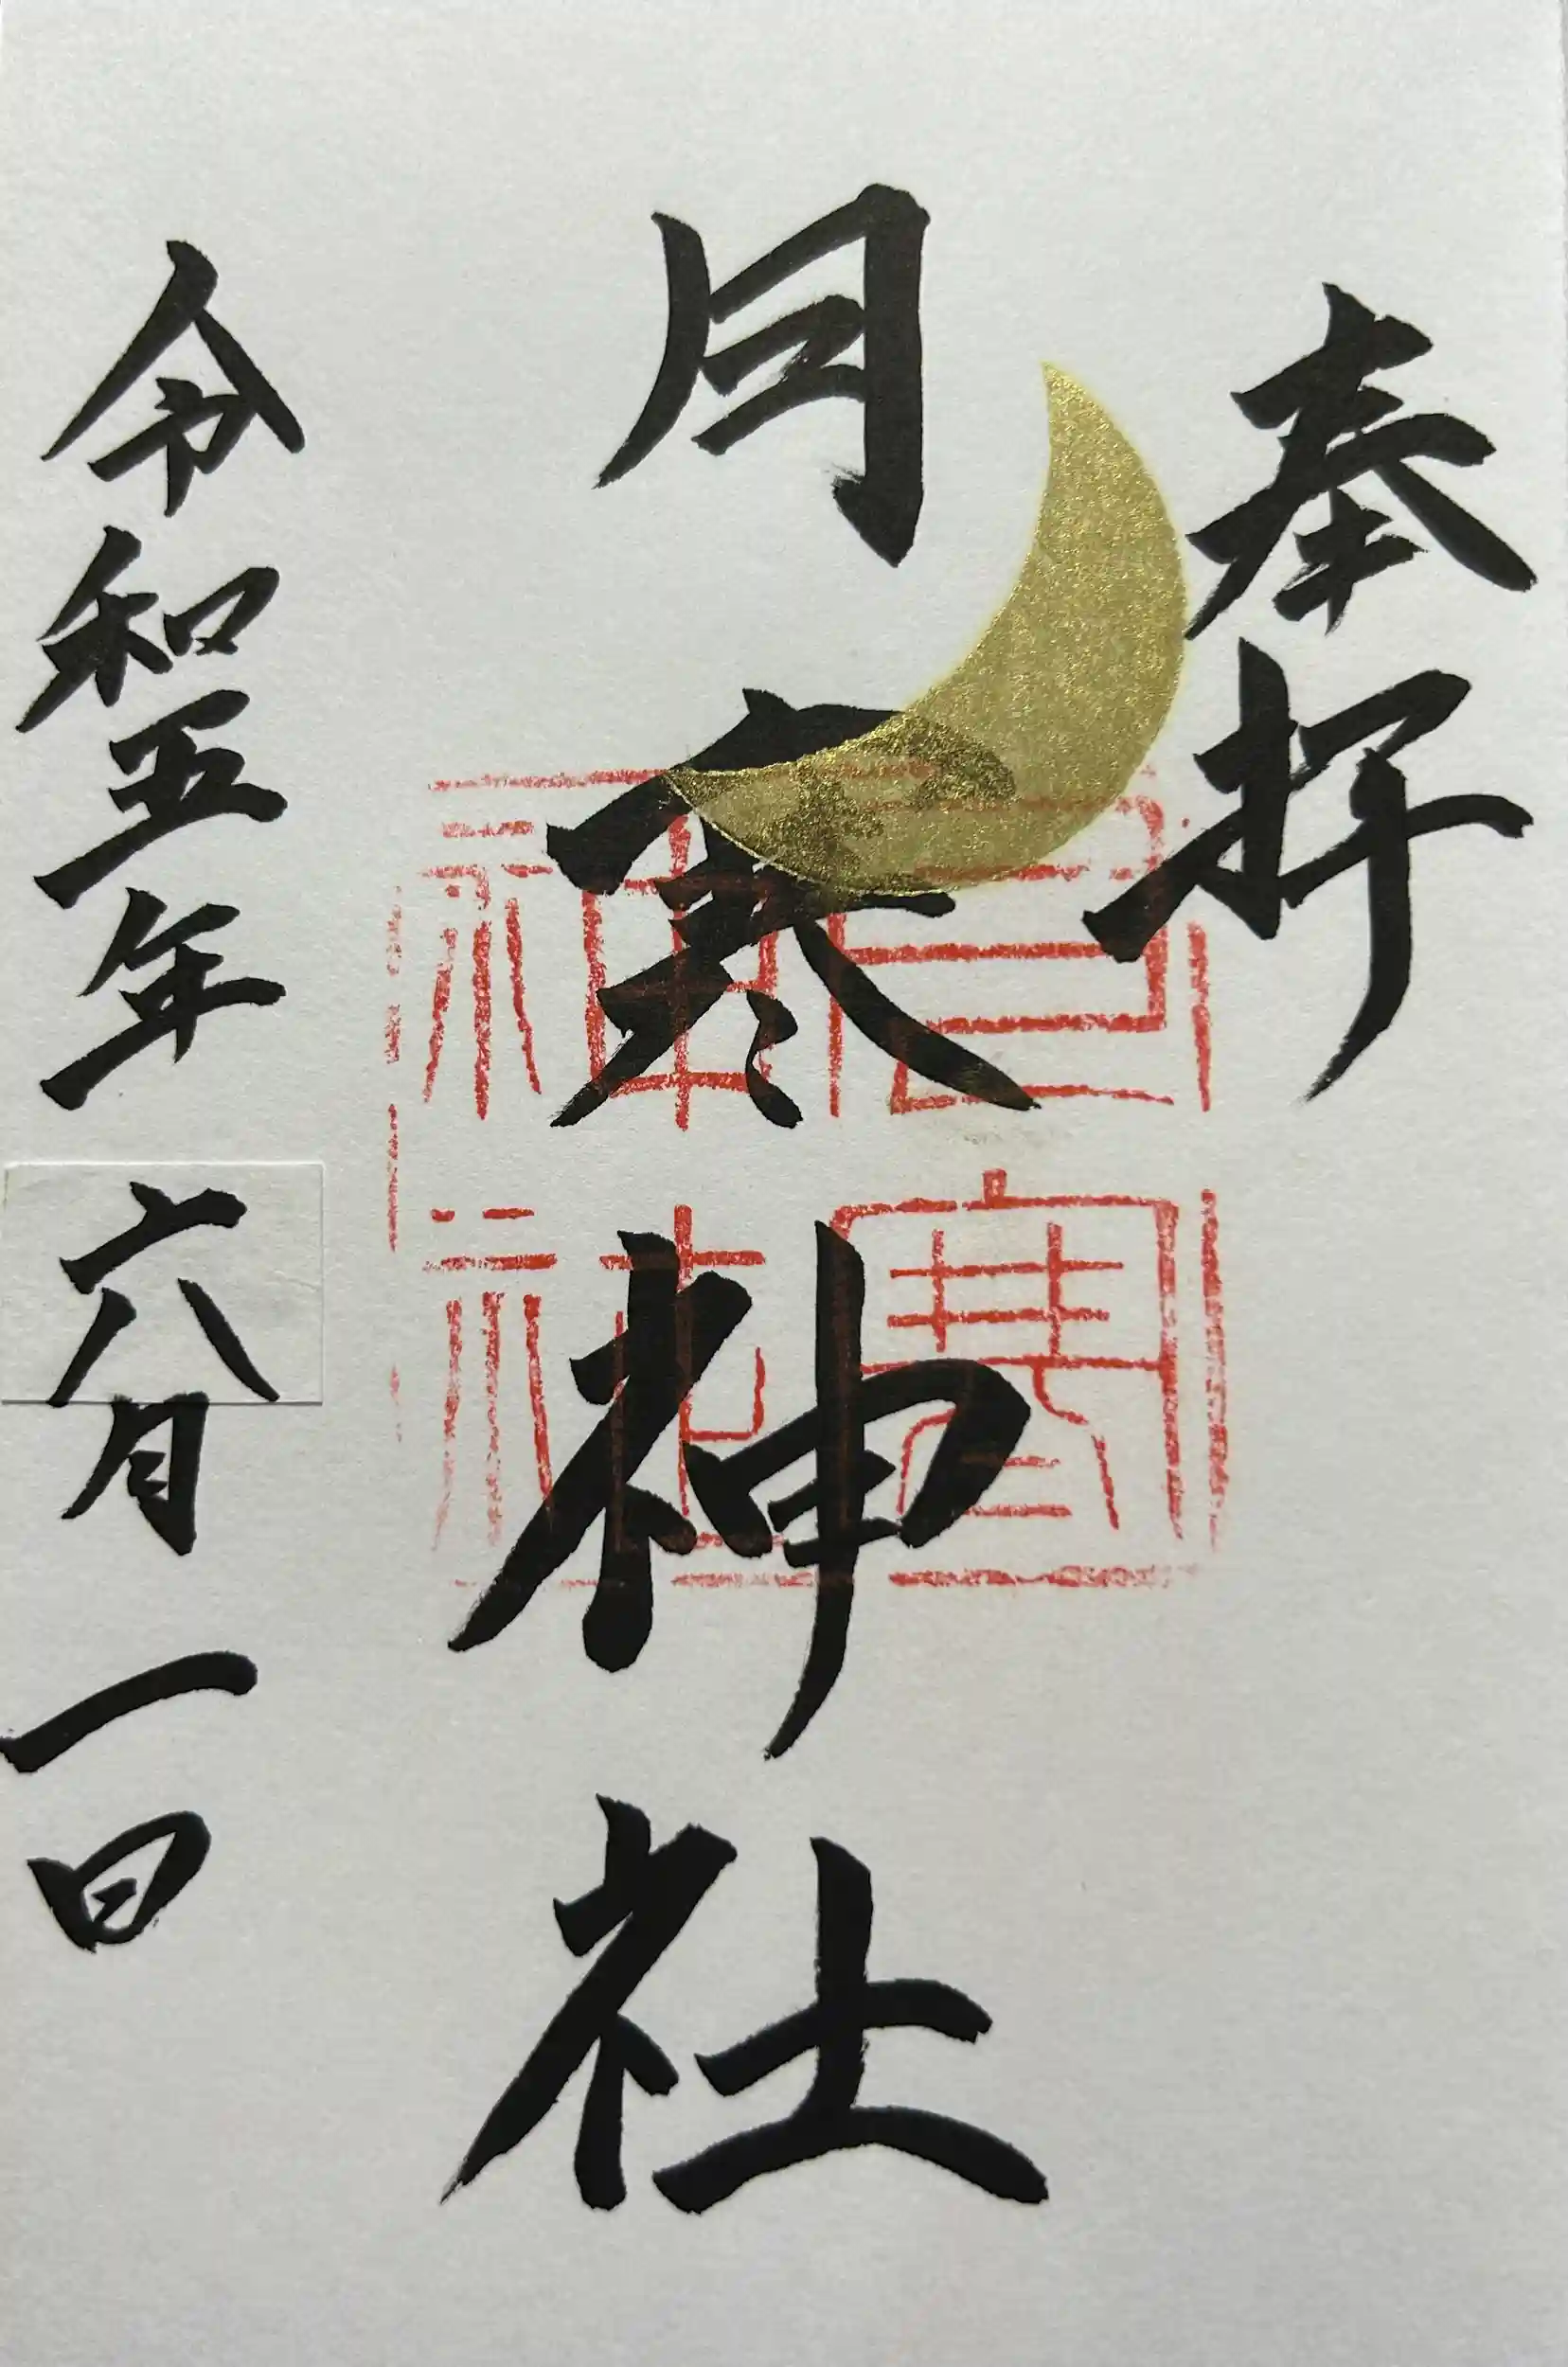 奉拝
月寒神社
令和五年六月一日
月寒神社